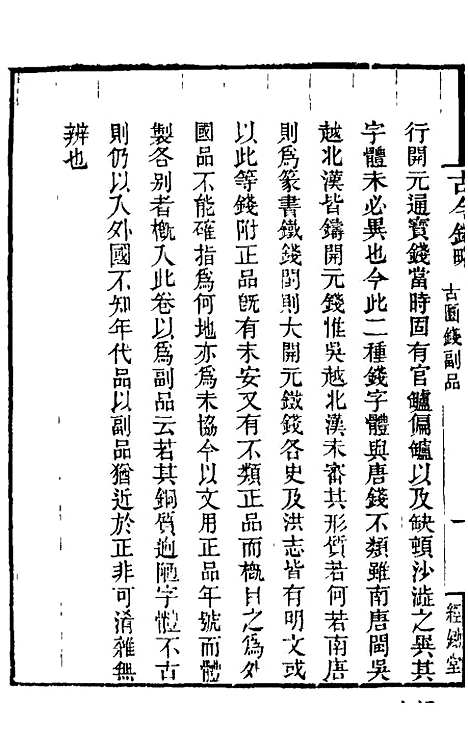 古今錢略
古圜錢副品
一
經畬堂
行開元通寶錢當時固有官鑪偏鑪以及缺頓沙澁之異其
字體未必異也今此二種錢字體與唐錢不類雖南唐閩吳
越北漢皆鑄開元錢惟吳越北漢未審其形質若何若南唐
則爲篆書鐵錢閩則大開元鐵錢各史及洪志皆有明文或
以此等錢附正品旣有未安又有不類正品而槪目之爲外
國品不能確指爲何地亦爲未協今以文用正品年號而體
製各别者槪入此卷以爲副品云若其銅質迥陋字體不古
則仍以入外國不知年代品以副品猶近於正非可淆雜無
辨也